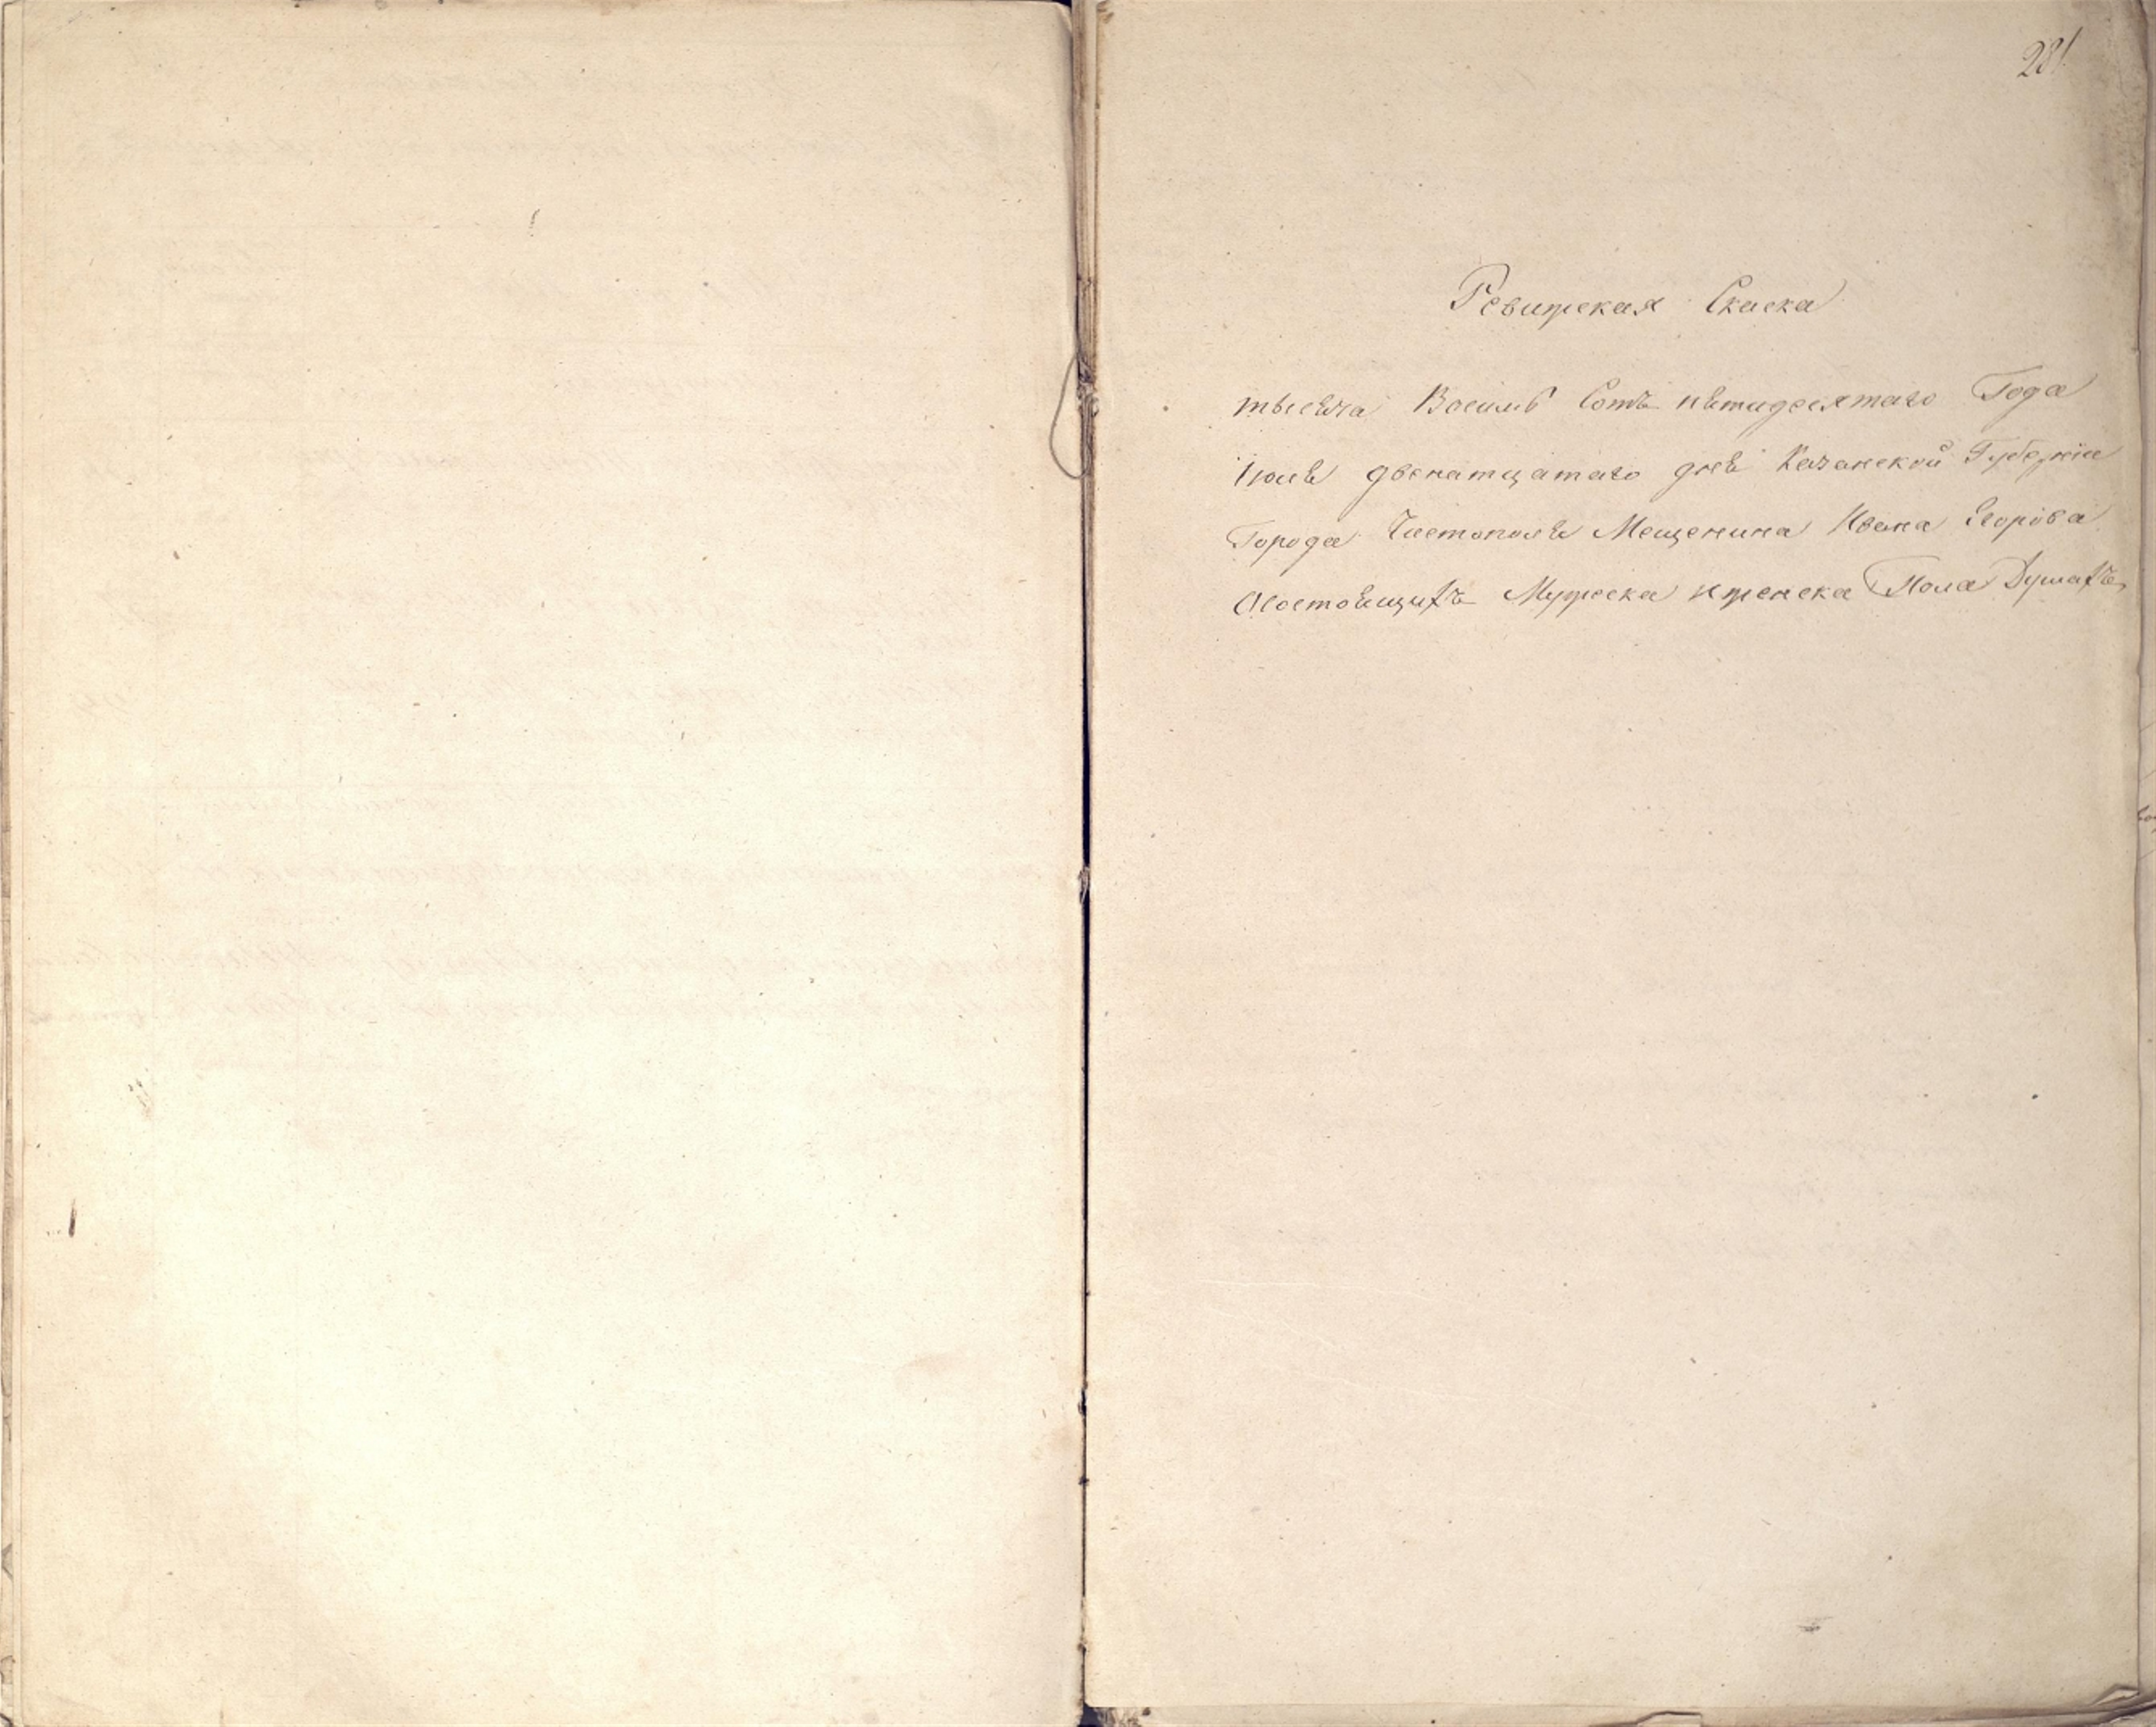 281
Ревижская Скаска
тысѣча Восимь Сотъ пѣтидесятаго Года
Іюлѣ двенатцатаго днѣ Казанской Губерніи
Города Чистополѣ Мещенина Ивана Егорова
Осостоѣщихъ Мужеска иженска Пола Душахъ